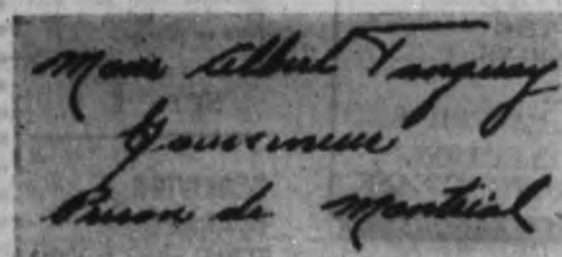 Mons Albert Tanguay
Gouverneur
Prison de Montréal